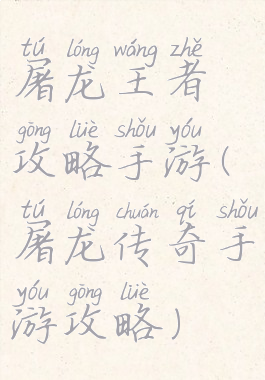 tú lóng wáng zhě
屠龙王者
gōng lüè shǒu yóu
攻略手游(
tú lóng chuán qí shǒu
屠龙传奇手
yóu gōng lüè
游攻略)